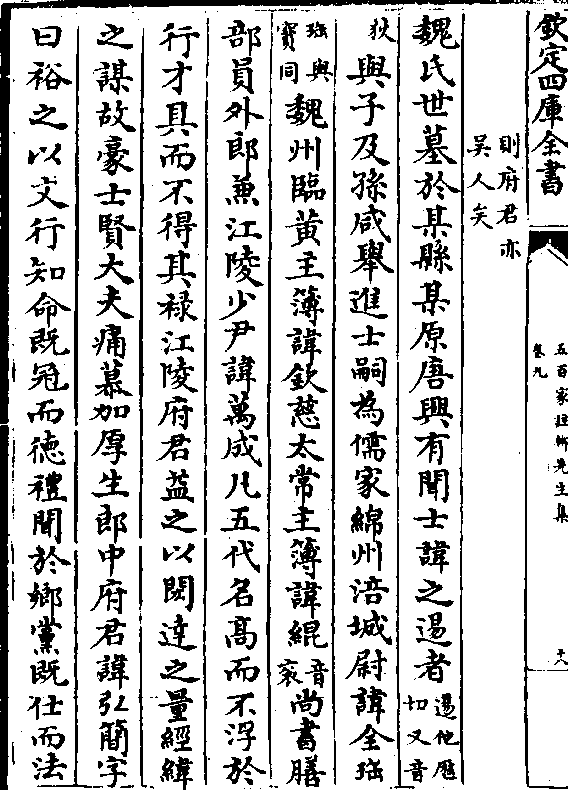 欽定四庫全書
五百家註柳先生集
卷九
十八
則府君亦
吳人矣
魏氏世墓於某縣某原唐興有聞士諱之逷者逷他歷
切又音
狄與子及孫咸舉進士嗣為儒家綿州涪城尉諱全珤
珤與
寶同魏州臨黃主簿諱欽慈太常主簿諱緄音
袞尚書膳
部員外郎兼江陵少尹諱萬成凡五代名高而不浮於
行才具而不得其禄江陵府君益之以閎達之量經緯
之謀故豪士賢大夫痛慕加厚生郎中府君諱弘簡字
曰裕之以文行知命既冠而德禮聞於鄉黨既仕而法